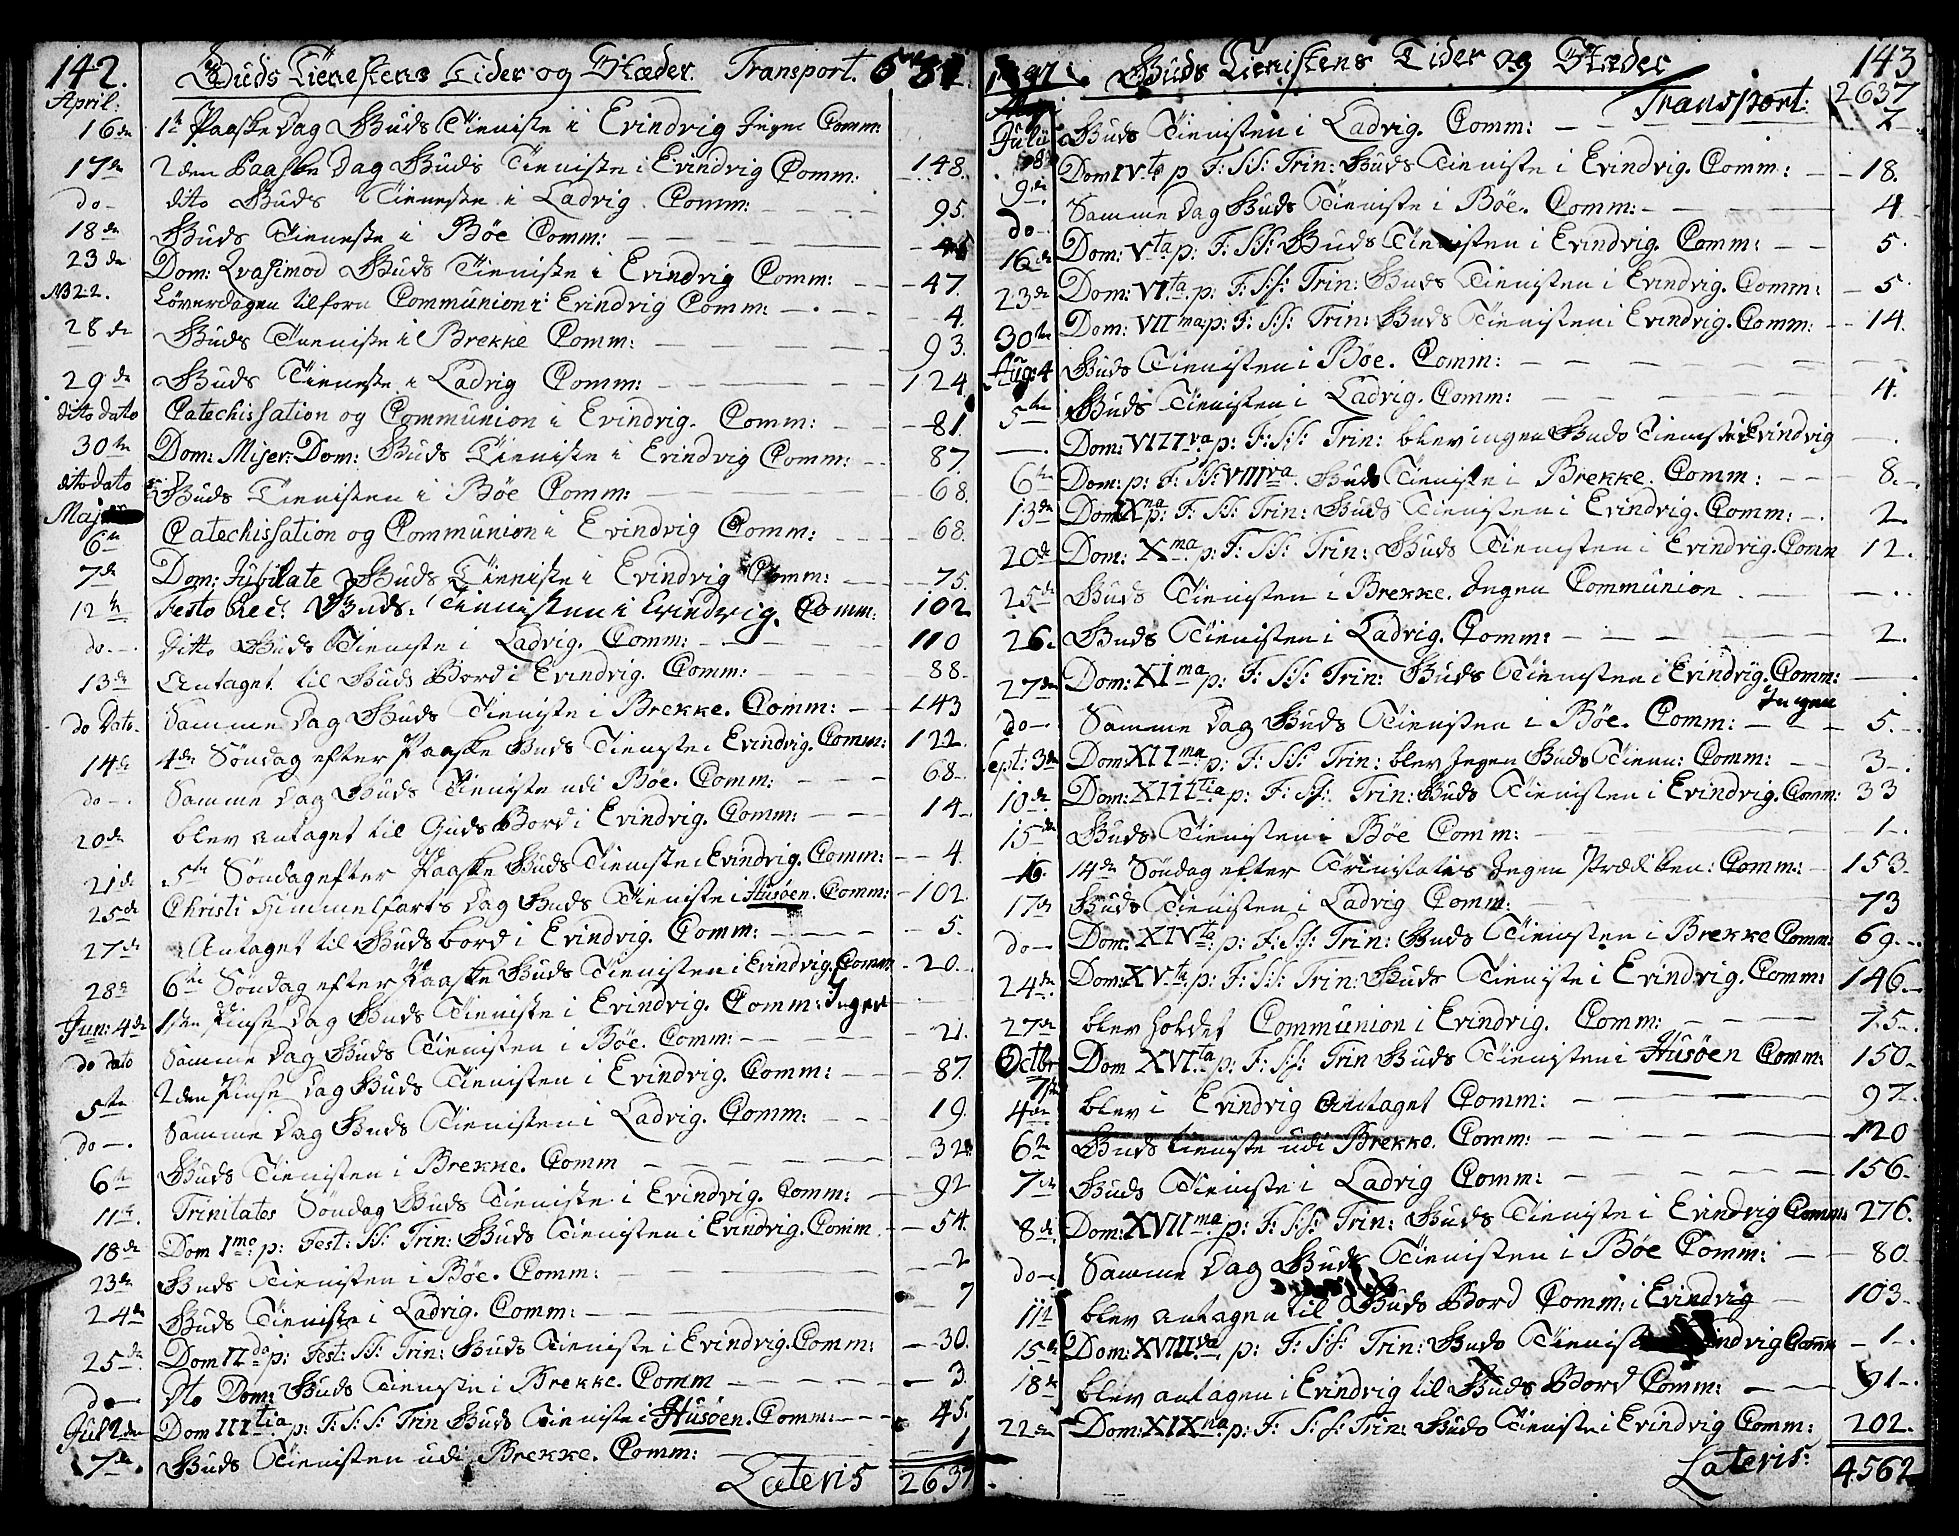 142. Guds Tienestens Tider og Stæder. Transport.
April:
16de 1te Paaske Dag Guds Tieniste i Evindvig Ingen Comm:
17de 2den Paaske Dag Guds Tieniste i Evindvig Comm: 148.
do - dito Guds Tieneste i Ladvig. Comm: 95.
18de Guds Tieneste i Böe Comm:
23de Dom: Qvasimod Guds Tieniste i Evindvig Comm: 47.
NB 22. Löverdagen tilforn Communion i Evindvig Comm: 4.
28de Guds Tieniste i Brekke Comm: 93.
29de Guds Tieneste i Ladvig Comm: 124
dito dato Catechisation og Communion i Evindvig. Comm: 81.
30te Dom: Miser: Dom: Guds Tieniste i Evindvig Comm: 87.
dito dato Guds Tienisten i Böe Comm: 68.
Maj
6te Catechisation og Communion i Evindvig Comm: 68.
7de Dom: Jubilate Guds Tieniste i Evindvig Comm: 75.
12te Festo Guds: Tienisten i Evindvig. Comm: 102
do - Ditto Guds Tieniste i Ladvig. Comm: 110
13de Antaget til Guds Bord i Evindvig. Comm: 88.
do Dato. Samme Dag Guds Tieniste i Brekke. Comm: 143
14de 4de Söndag efter Paaske Guds Tieniste i Evindvig. Comm: 122.
do - Samme Dag Guds Tieniste udi Böe. Comm: 68.
20de blev antaget til Guds Bord i Evindvig. Comm: 14.
21de 5te Söndag efter Paaske Guds Tieniste i Evindvig. Comm: 4.
25de Christi Himmelfarts Dag Guds Tieniste i Husöen. Comm: 102.
27de Antaget til Guds bord i Evindvig. Comm: 5.
28de 6te Söndag efter Paaske Guds Tienisten i Evindvig. Comm: 20.
Jun: 4de 1ste Pinse Dag Guds Tieniste i Evindvig. Comm: Ingen
do dato Samme Dag Guds Tienisten i Böe. Comm: 21.
5te 2den Pinse Dag Guds Tienisten i Evindvig. Comm: 87.
do -. Samme Dag Guds Tienisten i Ladvig. Comm: 19.
6te Guds Tienisten i Brekke. Comm 32
11te. Trinitates Söndag Guds Tieniste i Evindvig. Comm: 92
18de Dom 1mo p: Fest: SS: Trin: Guds Tienisten i Evindvig. Comm. 54.
23de Guds Tienisten i Böe. Comm: 2
24de Guds Tieniste i Ladvig. Comm: 7
25de Dom IIda p: Fest: SS: Trin: Guds Tieniste i Evindvig. Comm: 30.
do - Dto Dom: Guds Tieniste i Brekke. Comm 3.
Jul 2den Dom IIItia p: F: S: S: Trin Guds Tieniste i Husöen. Comm: 45.
7de. Guds Tienisten udi Brekke. Comm: 1
Lateris 2637
Guds Tienistens Tider og Stæder 143
Transport: 2637
Julii
8 Guds Tienisten i Ladvig. Comm: 7
9de Dom IVta p F: SS: Trin: Guds Tieniste i Evindvig. Comm: 18.
do - Samme Dag Guds Tieniste i Böe. Comm: 4
16de Dom: Vta p: F: SS: Guds Tienisten i Evindvig. Comm: 5.
23de Dom: VIta p: F: SS: Trin: Guds Tienisten i Evindvig. Comm: 5.
30te Dom: VIIma p: F: SS: Trin: Guds Tienisten i Evindvig. Comm: 14.
Aug: 4 Guds Tienisten i Böe. Comm:
5te Guds Tienisten i Ladvig. Comm: 4.
Dom: VIIIva p: F: SS: Trin: blev ingen Guds Tieniste i Evindvig
6te Dom: p: F: SS: VIIIva. Guds Tieniste i Brekke. Comm: 8.
13de Dom IXna p: F: SS: Trin: Guds Tienisten i Evindvig. Comm: 2.
20de Dom: Xma p: F: SS: Trin: Guds Tienisten i Evindvig. Comm 12.
25de Guds Tienisten i Brekke. Ingen Communion
26. Guds Tienisten i Ladvig. Comm: 2.
27de Dom: XIma p: F: SS: Trin: Guds Tienisten i Evindvig. Comm: Ingen
do - Samme Dag Guds Tienisten i Böe. Comm: 5.
Sept: 3de Dom XIIma p: F: SS: Trin: blev Ingen Guds Tien: Comm: 3.
10de Dom: XIIItia p: F: SS: Trin: Guds Tienisten i Evindvig. Comm: 33
15de Guds Tienisten i Böe Comm: 1.
16. 14de Söndag efter Trinitatis Ingen Prædiken: Comm: 153.
17de Guds Tienisten i Ladvig Comm: 73
do - Dom: XIVta p: F: SS: Trin: Guds Tienisten i Brekke Comm: 69.
24de Dom: XVta p: F: SS: Trin: Guds Tieniste i Evindvig. Comm: 146.
27de blev holdet Communion i Evindvig. Comm: 75.
Octbr Dom XVIta p: F: SS: Trin Guds Tienisten i Husöen Comm: 150.
4de blev i Evindvig Antaget Comm: 97.
6te Guds tieniste udi Brekke. Comm: 120
7de Guds Tieniste i Ladvig Comm: 156.
8de Dom: XVIIma p: F: SS: Trin: Guds Tieniste i Evindvig Comm: 276.
do - Samme Dag Guds Tienisten i Böe Comm: 80.
11te blev antagen til Guds Bord Comm: i Evindvig 103.
15de Dom: XVIIIva p: F: SS: Trin: Guds Tieniste Evindvig Comm 1.
18de blev antagen i Evindvig til Guds Bord Comm: 91.
22de Dom: XIXna p: F: SS: Trin: Guds Tieniste i Evindvig Comm: 202.
Lateris: 4562